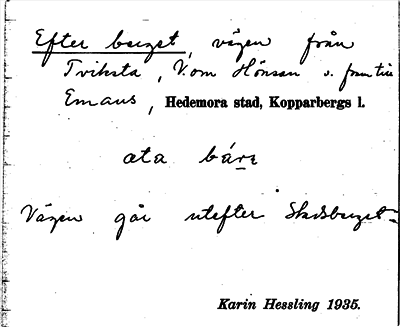 Efter berget, vägen från
Tviksta, V. om Hönsan o. fram till
Emaus, Hedemora stad, Kopparbergs l.
ata bára
Vägen går utefter Stadsberget.
Karin Hessling 1935.